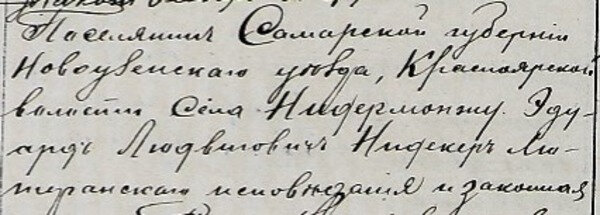 Поселянинъ Самарской губерніи
Новоузенскаго уѣзда, Красноярской
волости Села Нидермонжу. Эду-
ардъ Людвиговичъ Нидекеръ лю-
теранскаго исповѣданія и законная